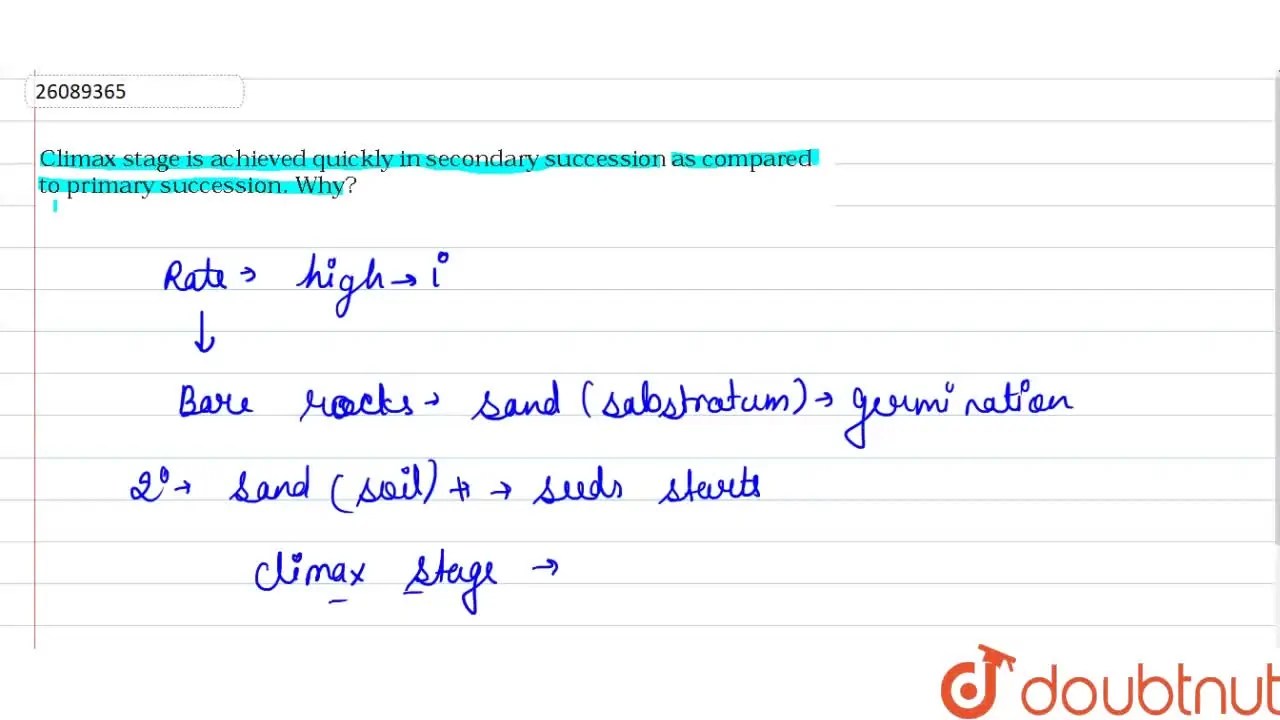 26089365
Climax stage is achieved quickly in secondary succession as compared
to primary succession. Why?
Rate → high → 1°
↓
Bare rocks → sand (sabstratum) → germination
2° → sand (soil) → seeds starts
Climax stage →
doubtnut